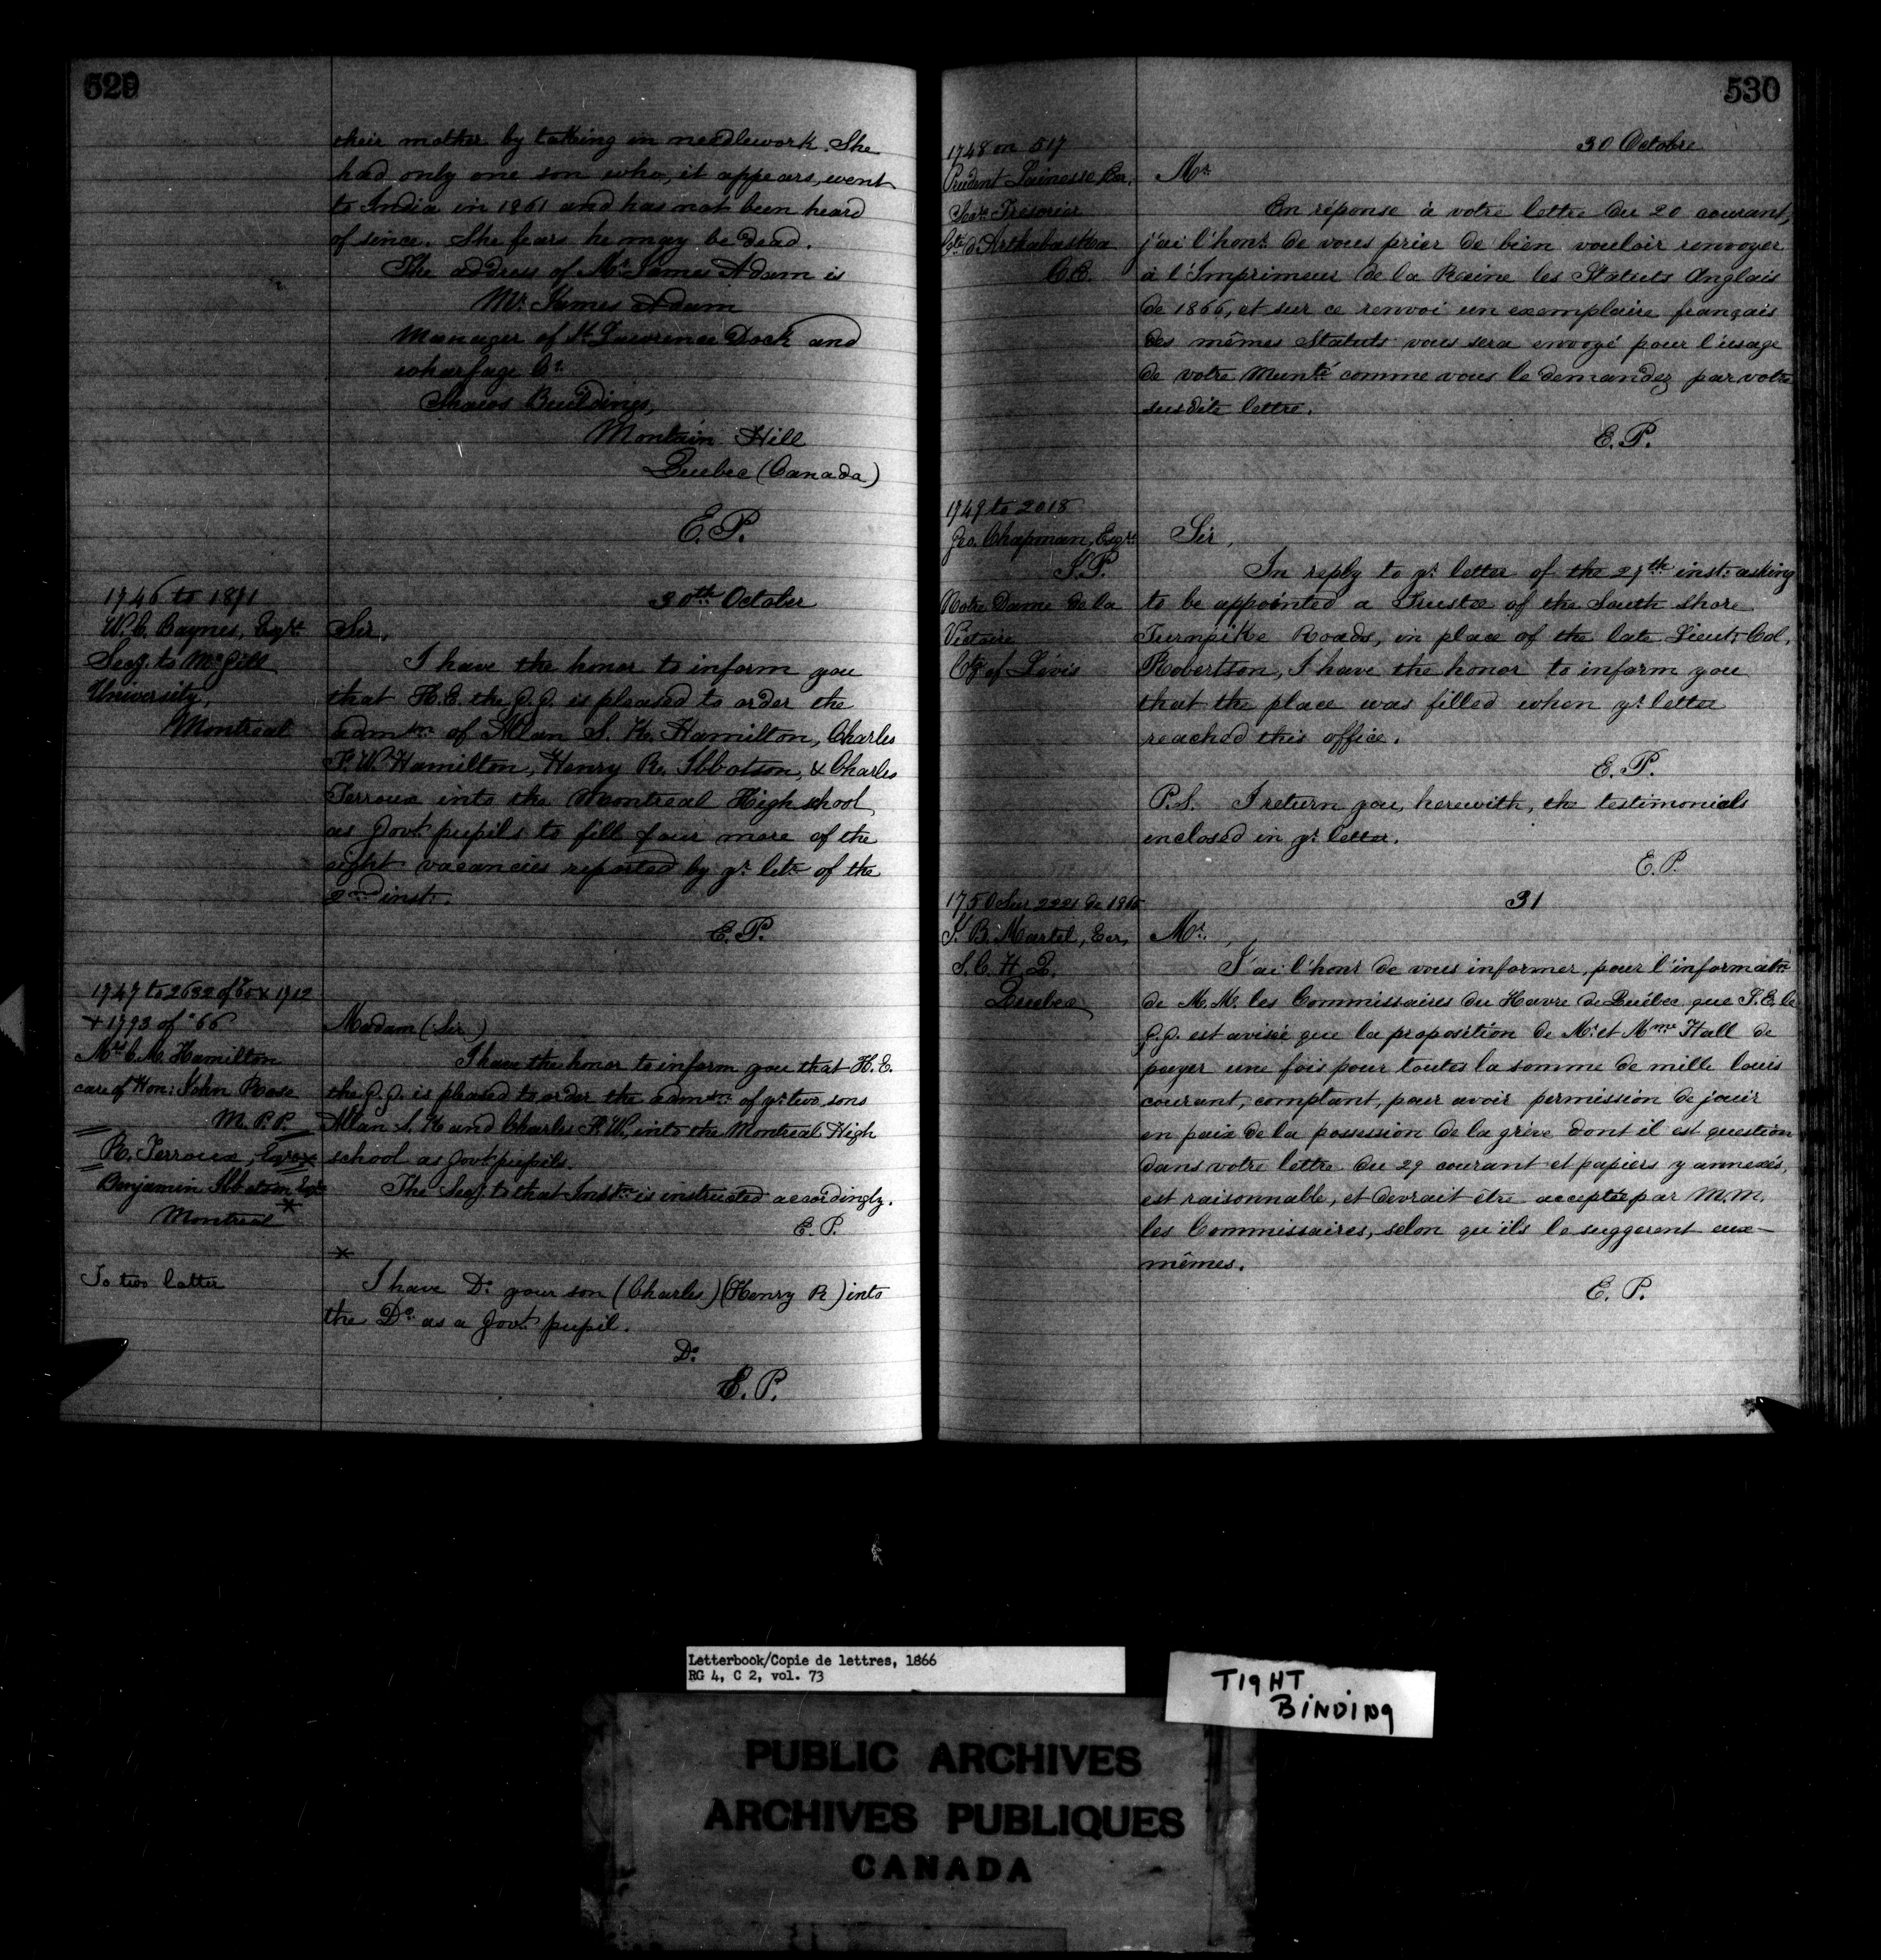 529
their mother by taking in needlework. She
had only one son who, it appears, went
to India in 1861 and has not been heard
of since. She fears he may be dead.
The address of Mr. James Adam is
Mr. James Adam
Manager of St. Lawrence Dock and
wharfage Co.
Shaws Buildings,
Montain Hill
Quebec (Canada)
E. P.
1746 to 1871
W. C. Baynes, Esqre.
Secy. to McGill
University,
Montreal
30th October
Sir,
I have the honor to inform you
that H. E. the G. G. is pleased to order the
admson. of Allan S. K. Hamilton, Charles
F. W. Hamilton, Henry R. Ibbotson, & Charles
Terroux into the Montreal High school
as Govt. pupils to fill four more of the
eight vacancies reported by yr. letr. of the
2nd inst.
E. P.
1747 to 2632 of 65 & 1712
& 1793 of "66
Mrs. C. M. Hamilton
care of Hon: John Rose
M. P. P.
R. Terroux, Esqre
Benjamin Ibbotson Esqr.
Montreal *
Madam (Sir)
I have the honor to inform you that H. E.
the G. G. is pleased to order the admson. of yr. two sons
Allan S. K and Charles F. W., into the Montreal High
school as Govt. pupils.
The Secy. to that Instn. is instructed accordingly.
E. P.
*
To two latter
I have Do. your son (Charles) (Henry R) into
the Do. as a Govt. pupil.
Do.
E. P.
530
1748 on 517
Prudent Lainesse Ecr,
Secre. Trésorier
Cté. d'Arthabaska
C. E.
30 Octobre
Mr.
En réponse à votre lettre du 20 courant,
j'ai l'honr. de vous prier de bien vouloir renvoyer
à l'Imprimeur de la Reine les Statuts Anglais
de 1866, et sur ce renvoi un exemplaire français
des mêmes Statuts vous sera envoyé pour l'usage
de votre Munté. comme vous le demandez par votre
susdite lettre.
E. P.
1749 to 2018
Geo. Chapman, Esqre.
J. P.
Notre Dame de la
Victoire
Cty of Lévis
Sir,
In reply to yr. letter of the 27th inst: asking
to be appointed a Trustee of the South Shore
Turnpike Roads, in place of the late Lieut. Col.
Robertson, I have the honor to inform you
that the place was filled when yr. letter
reached this office.
E. P.
P.S. I return you, herewith, the testimonials
enclosed in yr. letter.
E. P.
1750 Sur 2221 de 1865
J. B. Martel, Ecr,
S. C. H. Q.
Quebec
31
Mr.,
J'ai l'honr de vous informer, pour l'informatn.
de M. M. les Commissaires du Havre de Québec que S. E. le
G. G. est avisé que la proposition de Mr. et Mme Hall de
payer une fois pour toutes la somme de mille louis
courant, comptant, pour avoir permission de jouir
en paix de la possession de la grève dont il est question
dans votre lettre du 29 courant et papiers y annexés,
est raisonnable, et devrait être acceptée par M. M.
les Commissaires, selon qu'ils le suggerent eux-
mêmes.
E. P.
Letterbook/Copie de lettres, 1866
RG 4, C 2, vol. 73
TIGHT
BINDING
PUBLIC ARCHIVES
ARCHIVES PUBLIQUES
CANADA